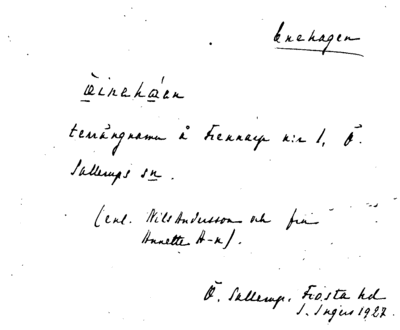 Enehagen
öinehaen
terrängnamn å Frennarp n:r 1, Ö.
Sallerups sn.
(enl. Nils Andersson och fru
Annette A-n).
Ö. Sallerup. Frosta hd
S. Ingers 1927.